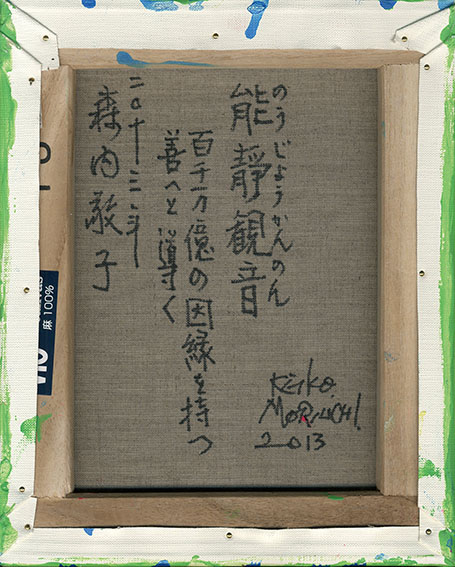 のうじょうかんのん
能靜観音
百千万億の因縁を持つ
善へと導く
二〇十三年
森内敬子
Keiko
MORIUCHI.
2013
麻 100%